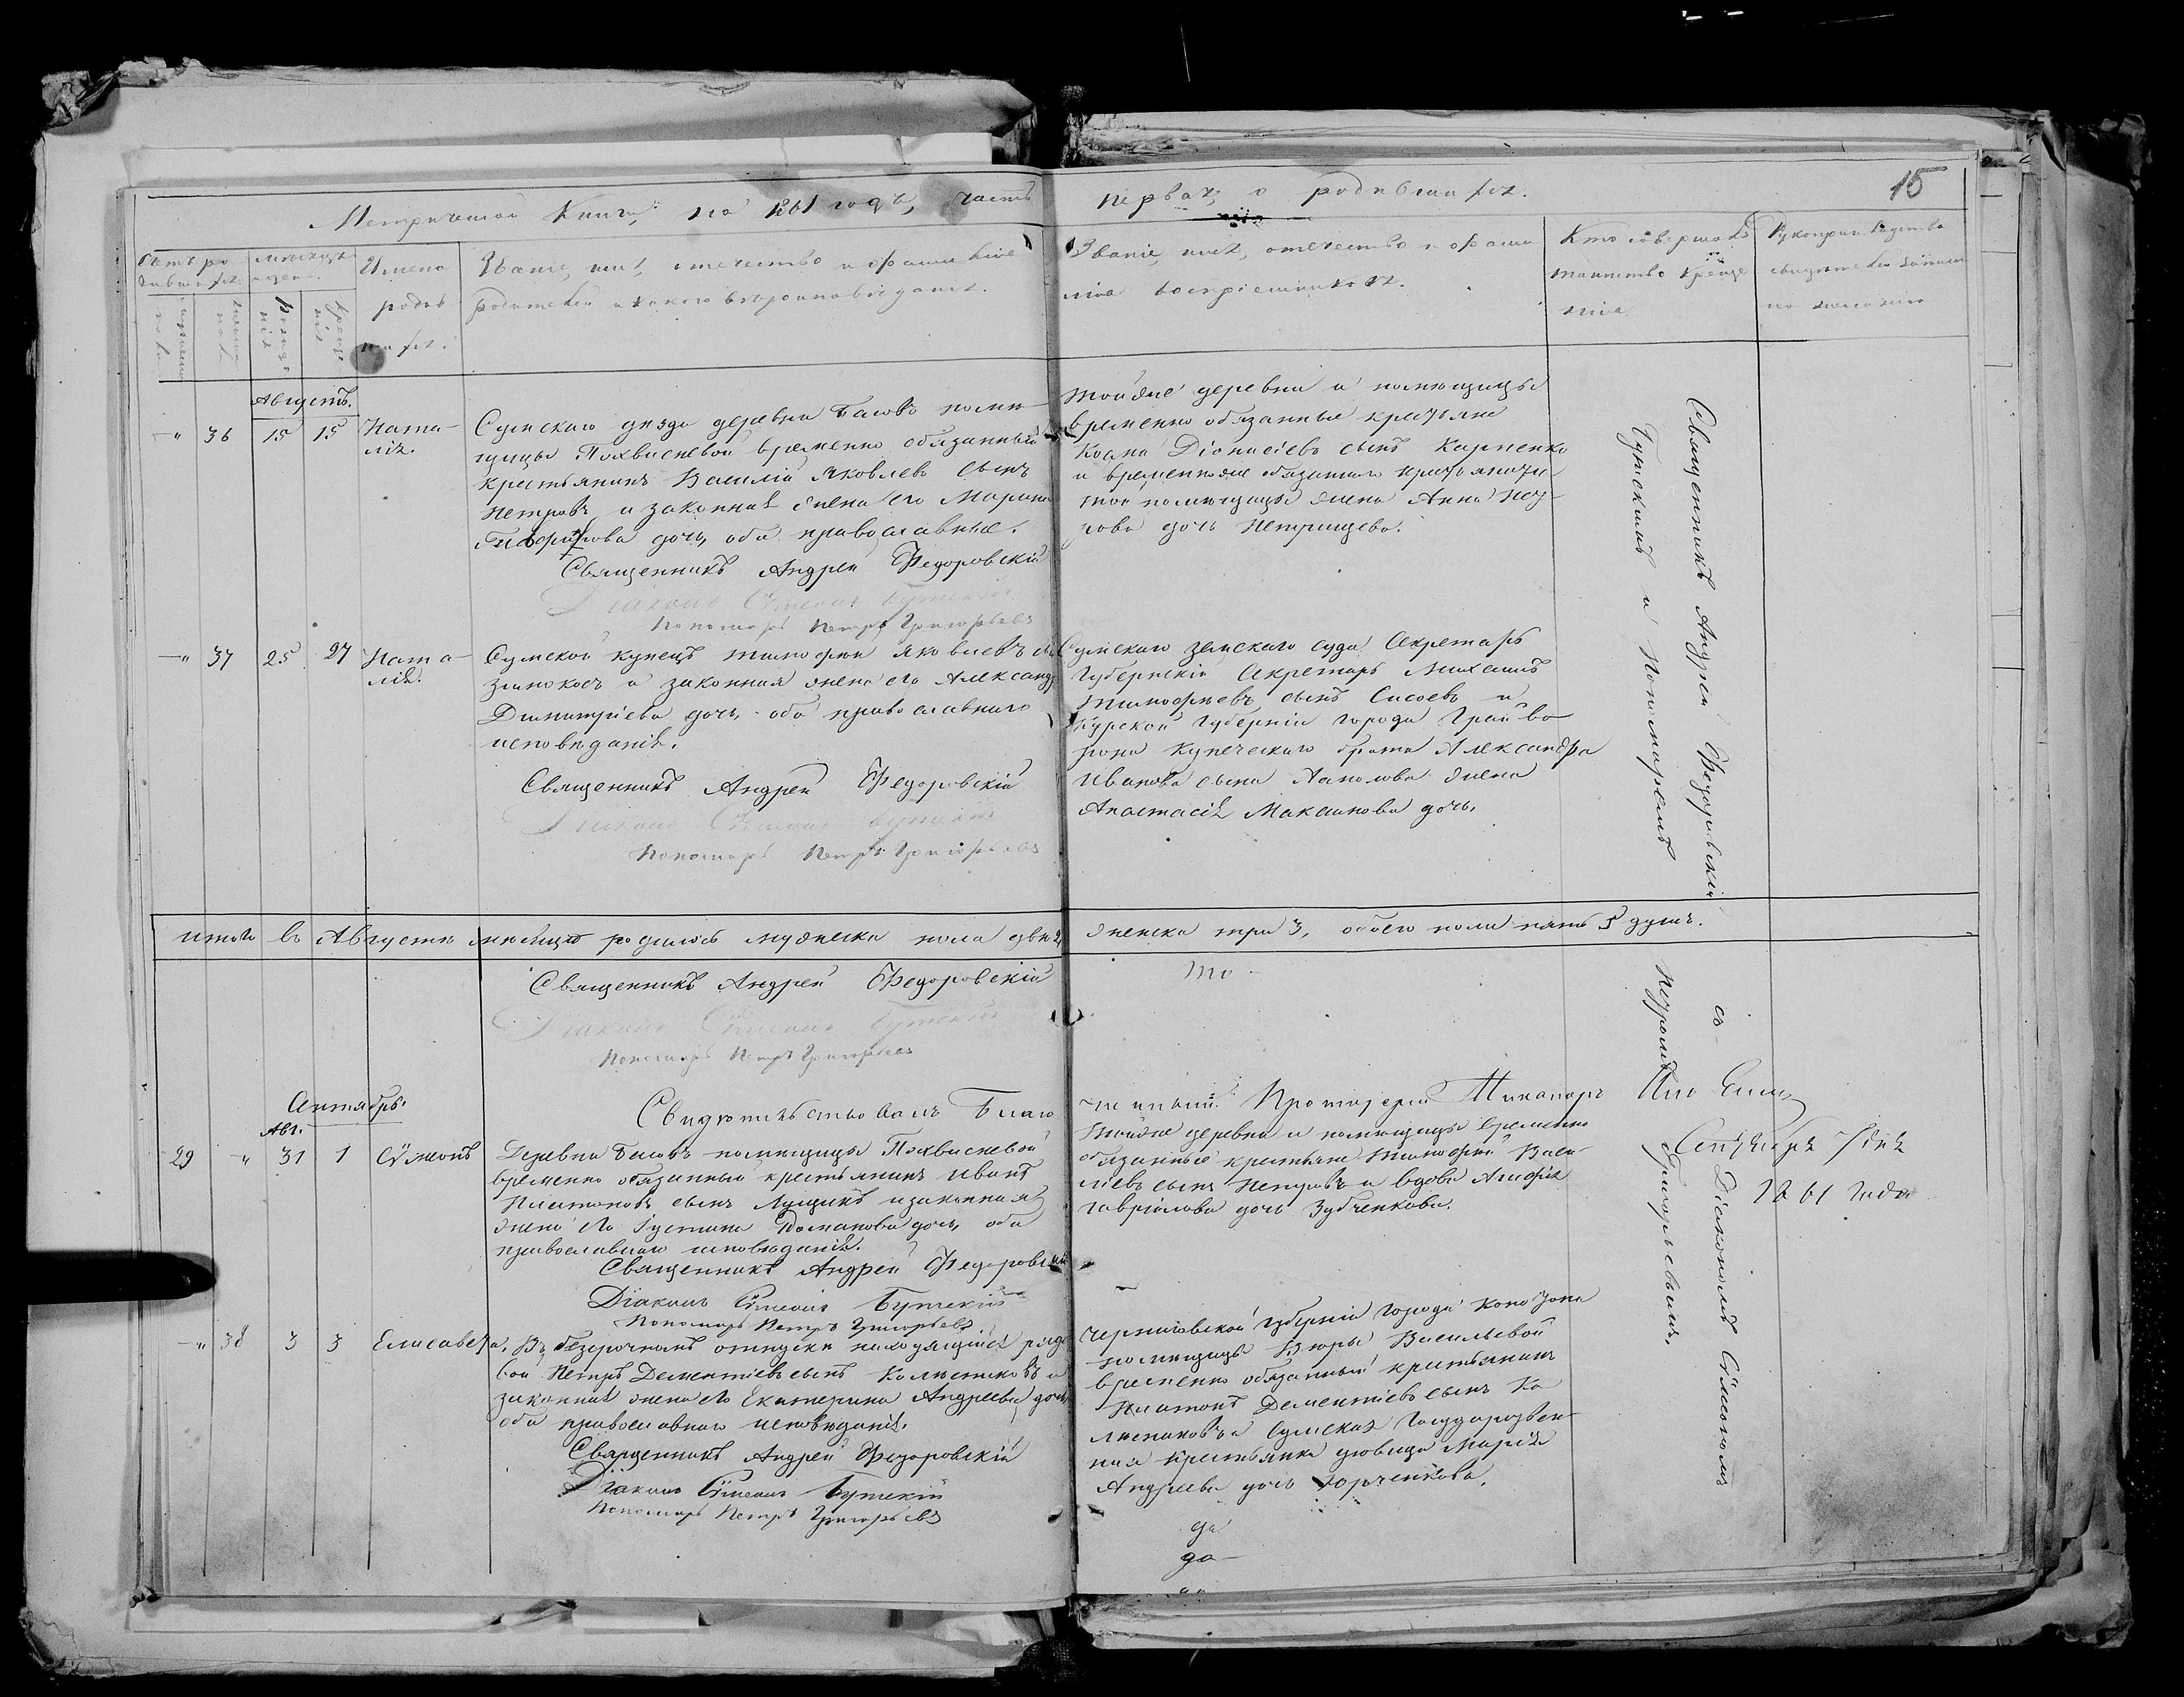 15
Метрической Книги, на 1861 годъ, часть первая, о родившихся.
Счетъ родившихся.
мужеска пола
женска пола
Мѣсяцъ и день.
рожденія
крещенія
Имена родившихся.
Званіе, имя, отечество и фамилія
родителей и какого вѣроисповѣданія.
Званіе, имя, отечество и фамилія
воспріемниковъ.
Кто совершалъ
таинство крещенія
Рукоприкладство
свидѣтелей записи
по желанію
Августъ.
" 36 15 15 Наталія.
Сумскаго уѣзда деревни Басовъ помѣ-
щицы Похвисневой временно обязанный
крестьянинъ Василій Яковлевъ сынъ
Петровъ и законная жена его Марина
дочь, оба православные.
Священникъ Андрей Федоровскій
Діаконъ Сѵмеонъ Бутскій
Пономарь Петръ Григорьевъ
тойже деревни и помѣщицы
временно обязанные крестьяне
Козма Діонисіевъ сынъ Карпенко
и временнообязаннаго крестьянина
той помѣщицы жена Анна
дочь Петрищева.
" 37 25 27 Наталія.
Сумской купецъ Тимофей Яковлевъ
и законная жена его Александра
Димитріева дочь, оба православнаго
исповѣданія.
Священникъ Андрей Федоровскій
Діаконъ Сѵмеонъ Бутскій
Пономарь Петръ Григорьевъ
Сумскаго земскаго суда Секретарь
Губернскій Секретарь Михаилъ
Тимофѣевъ сынъ Сисоевъ и
Курской Губерніи города Грайво-
рона купеческаго брата Александра
Иванова сына жена
Анастасія Максимова дочь.
Священникъ Андрей Федоровскій
и Пономаремъ
съ Діакономъ Сѵмеономъ
Петромъ Григорьевымъ.
Итого въ Августѣ мѣсяцѣ родилось мужеска пола два 2, женска три 3, обоего пола пять 5 душъ.
Священникъ Андрей Федоровскій
Діаконъ Сѵмеонъ Бутскій
Пономарь Петръ Григорьевъ
Сентябрь.
Свидѣтельствовалъ Благочинный Протоіерей Никаноръ
Сентября 7 дня
1861 года
Авг.
29 " 31 1 Сѵмеонъ
Деревни Басовъ помѣщицы Похвисневой
временно обязанный крестьянинъ Иванъ
Платоновъ сынъ Лущикъ и законная
жена его Іустина Романова дочь, оба
православнаго исповѣданія.
Священникъ Андрей Федоровскій
Діаконъ Сѵмеонъ Бутскій
Пономарь Петръ Григорьевъ
тойже деревни и помѣщицы временно
обязанные крестьяне Тимофей Васи-
ліевъ сынъ Петровъ и вдова Агафія
Гавріилова дочь Зубченкова.
" 38 3 3 Елисавета,
Въ безсрочномъ отпуску находящійся рядо-
вой Петръ Дементіевъ сынъ Колѣсниковъ и
законная жена его Екатерина Андреева дочь,
оба православнаго исповѣданія.
Священникъ Андрей Федоровскій
Діаконъ Сѵмеонъ Бутскій
Пономарь Петръ Григорьевъ
Черниговской Губерніи города Конотопа
помѣщицы Васильевой
временно обязанный крестьянинъ
Платонъ Дементіевъ сынъ Ко-
лѣсниковъ и Сумская Государствен-
ная крестьянка дѣвица Марія
Андреева дочь Юрченкова.